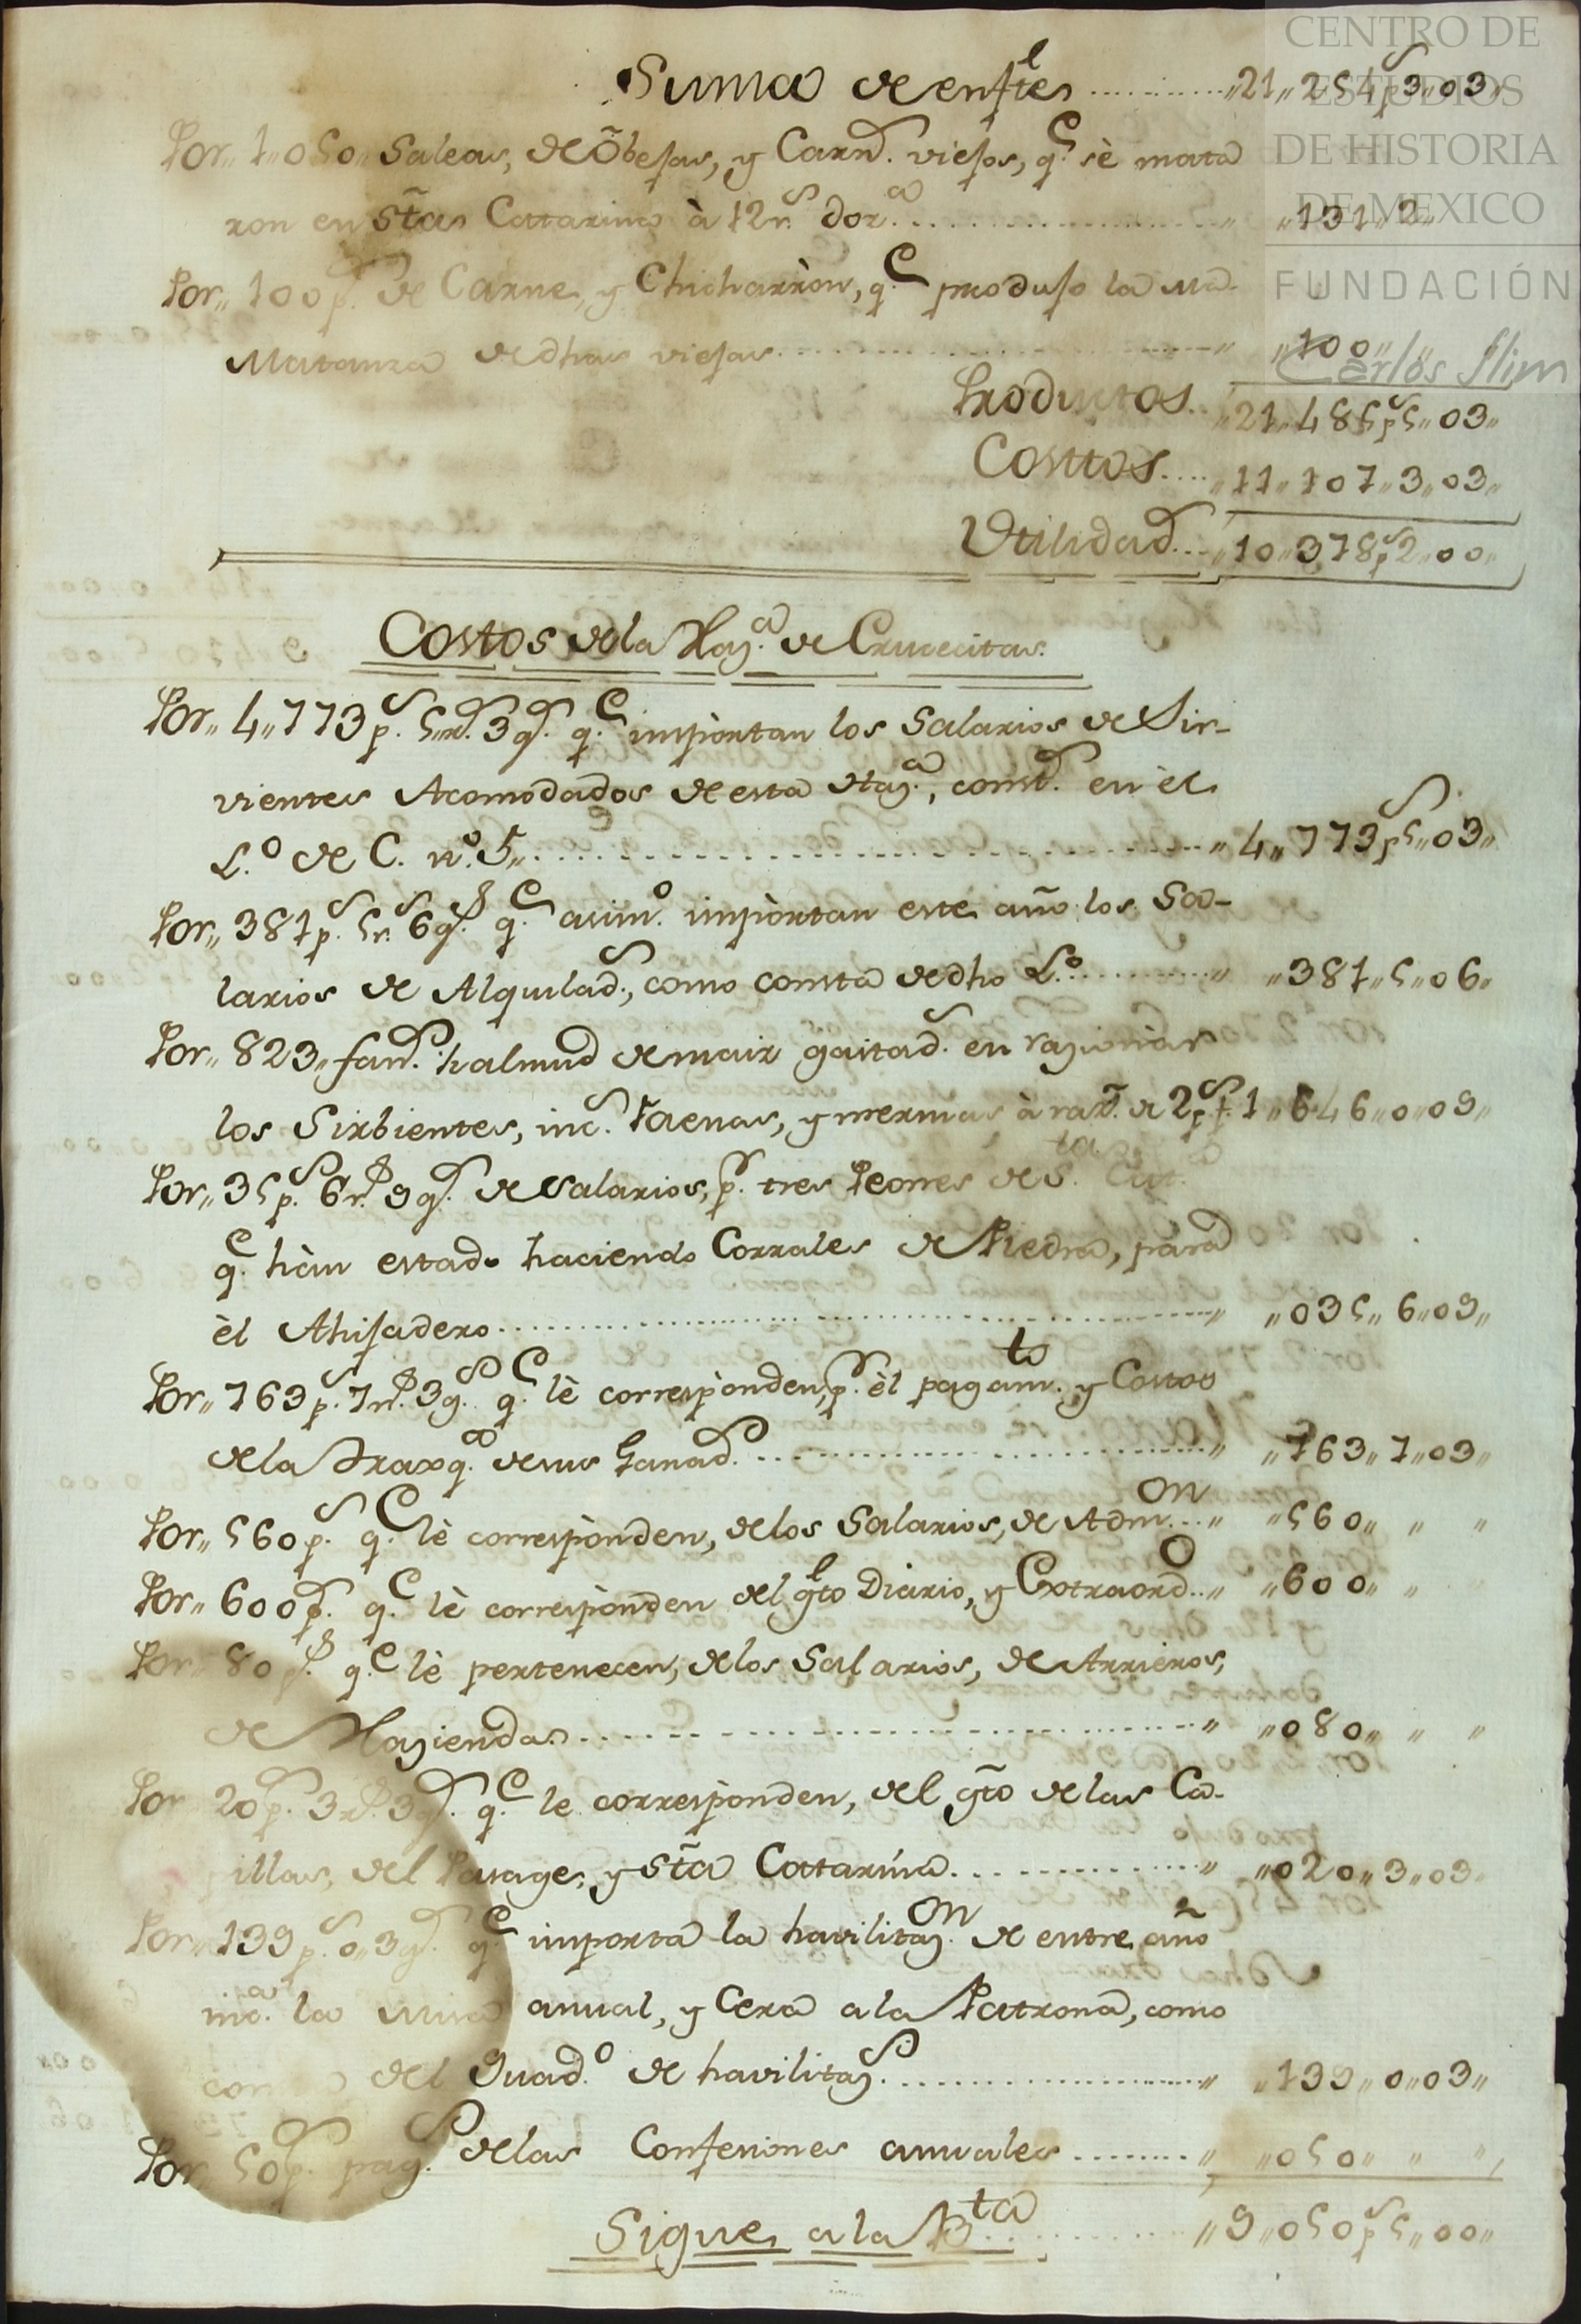 CENTRO DE
ESTUDIOS
DE HISTORIA
DE MEXICO
FUNDACIÓN
Carlos Slim
Suma de enftẽl ........... „21„254pˢ3„03„
Por„ 1„050„ Saleas, de Obejas, y Carnᵈ. viejos, q.ᵉ sè mata
ron en Sta Cattarina à 12rˢ. dozᵃ. ................ „ „131„2„
Por„ 100pˢ. de Carne, y Chicharròn, q.ᵉ produjo la Ma-
Matanza de dhas viejas ................ „ „100„ „ „
Productos.. „21„485pˢ5„03„
Costtos.... „11„107„3„03„
Vtilidad... „10„378pˢ2„00„
Costos de la Haz.ᵃ de Crucecitas.
Por„ 4„773pˢ. 5rˢ. 3gˢ. q.ᵉ impòrtan los Salarios de Sir-
vientes Acomodados de esta Haz.ᵃ, constᵈ. en èl
L.º de C. nº. 5„ ................ „ 4„773pˢ5„03„
Por„ 381pˢ. 5rˢ. 6gˢ. q.ᵉ asim.º impòrtan este año los Sa-
larios de Alquiladˢ., como consta de dho L.º ........ „ „381„5„06„
Por„ 823„ fanˢ. ½ almud de maiz gastadˢ. en razionar
los Sirbientes, incˢ. Faenas, y mermas, à raz.̃ de 2pˢ f. 1„646„0„09„
Por„ 35pˢ. 6rˢ. 9gˢ. de salarios, p.ʳ tres Peones de S.ᵗᵃ Cat.ᵃ
q.ᵉ hàn estado haciendo Corrales de Piedra, para
èl Ahijadero ................ „ „035„6„09„
Por„ 763pˢ. 7rˢ. 3gˢ. q.ᵉ lè correspònden, p.ʳ èl pagam.ᵗᵒ y Costos
de la Traxq.ᵃ de sus Ganadˢ. ................ „ „763„7„03„
Por„ 560pˢ. q.ᵉ lè correspònden, de los Salarios, de Adm.ᵒⁿ.. „ „560„ „ „
Por„ 600pˢ. q.ᵉ lè correspònden del gto Diario, y Extraord.º.. „ „600„ „
Por„ 80pˢ. q.ᵉ lè pertenecen, de los Salarios, de Arrieros,
de Haziendas ................ „ „080„ „ „
Por 20pˢ. 3rˢ. 3gˢ. q.ᵉ le correspònden, del gto de las Ca-
pillas, del Potage, y Sta Cattarina ............ „ „020„3„03„
Por„ 139pˢ. 0„3gˢ. q.ᵉ importa la havilitaz.ᵒⁿ de entre año
inc.ᵃ la misa anual, y Cera a la Patrona, como
consta del Quad.º de havilitazˢ. ................ „ „139„0„03„
Por 50pˢ. pagˢ. de las Confesiones anuales ........ „ „050„ „ „
Sigue, a la B.ᵗᵃ ............ „9„050pˢ5„00„